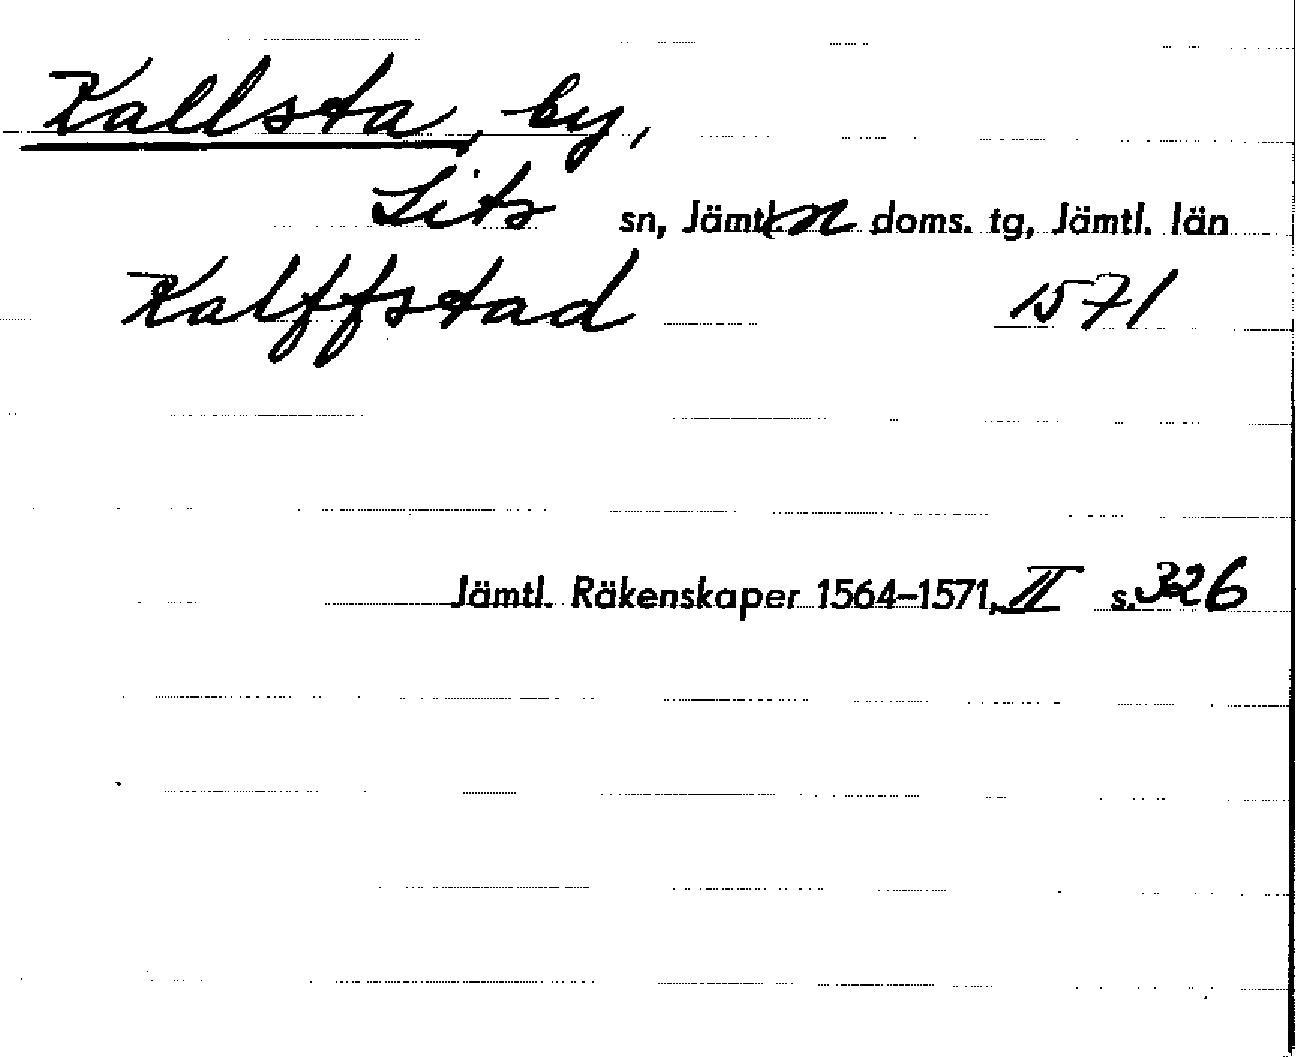 Kallsta, by,
Lits sn, Jämtl. n doms. tg, Jämtl. län
Kalffstad 1571
Jämtl. Räkenskaper 1564–1571, II s. 326